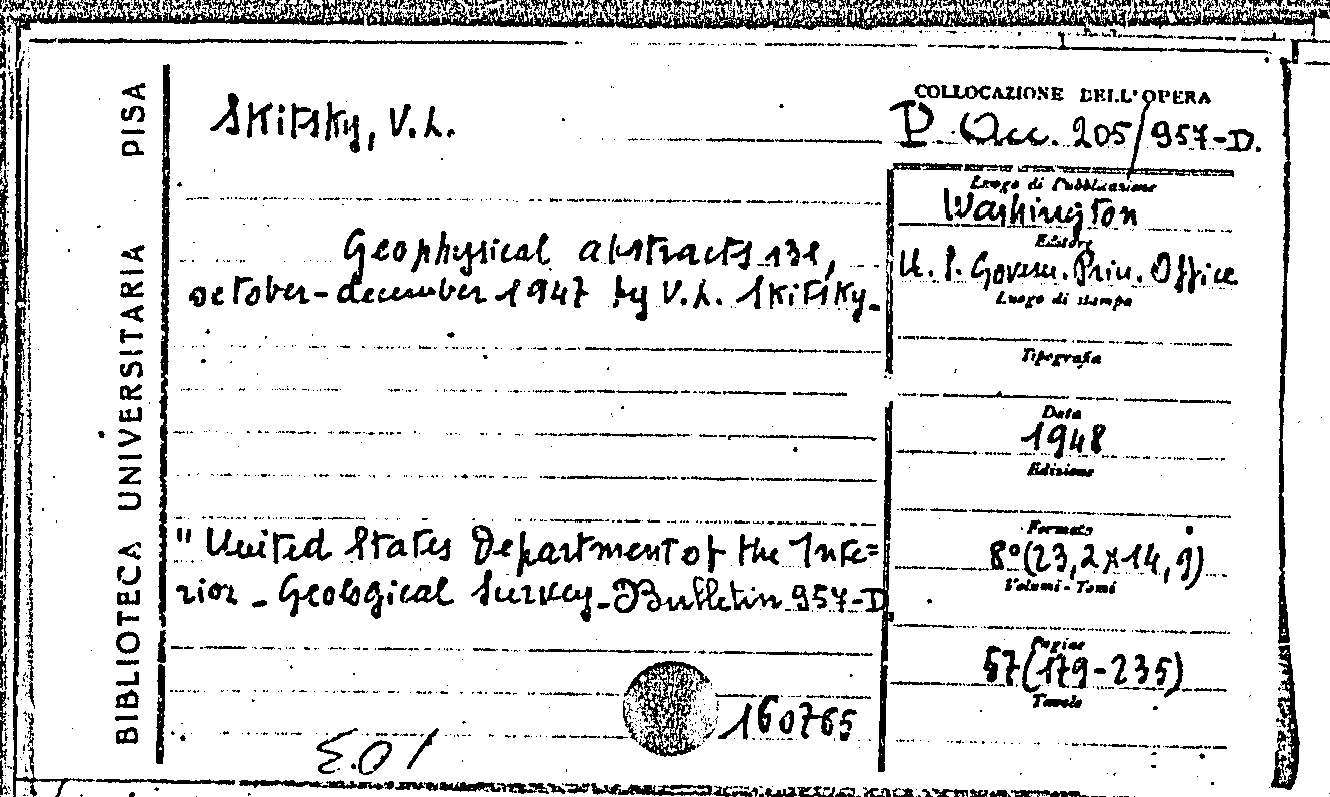 BIBLIOTECA UNIVERSITARIA PISA
Skitsky, V.L.
Geophysical abstracts 131,
october-december 1947 by V.L. Skitsky.
"United States Department of the Inte=
rior - Geological Survey - Bulletin 957-D
160765
E.O/
COLLOCAZIONE DELL'OPERA
P. Occ. 205/957-D.
Luogo di Pubblicazione
Washington
Editore
U.S. Govern. Prin. Office
Luogo di stampa
Tipografia
Data
1948
Edizione
Formato
8°(23,2x14,9)
Volumi - Tomi
Pagine
57(179-235)
Tavole